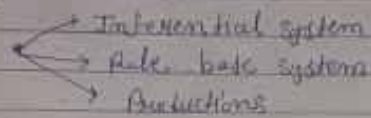 Inferential system
Rule base system
Productions